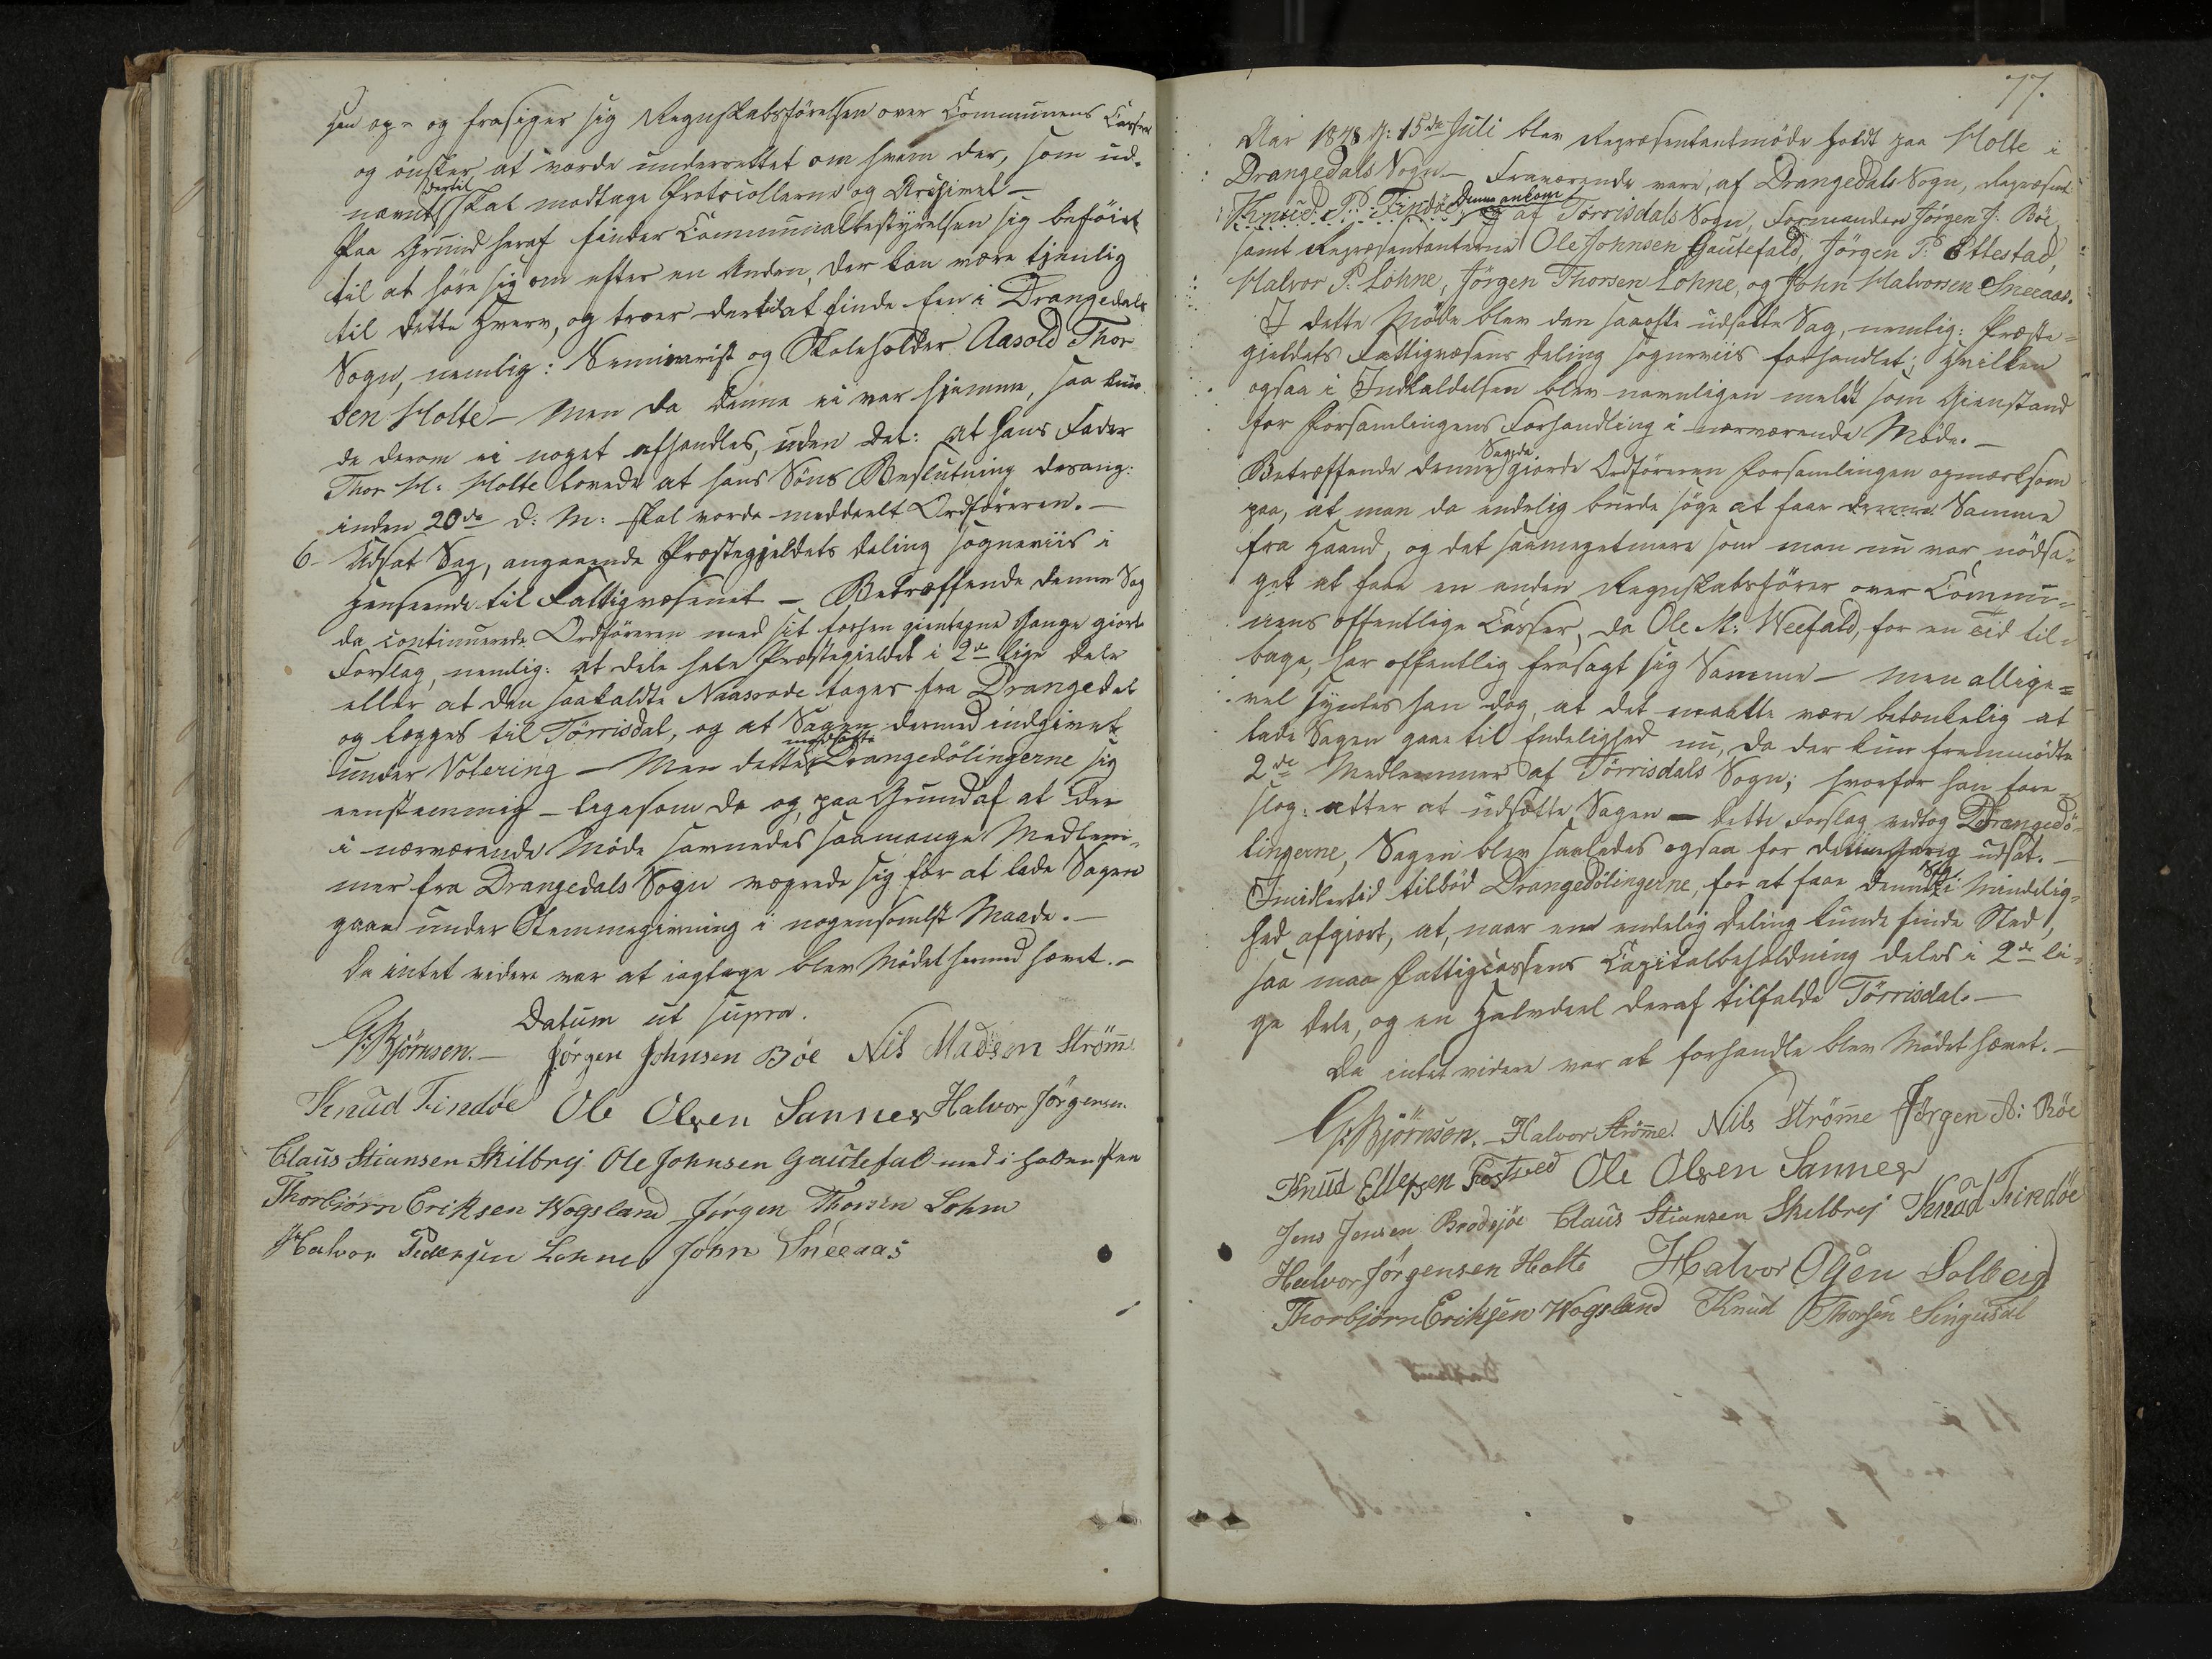 han op- og frasiger sig Regnskabsførelsen over Communens Casser
og ønsker at vorde underrettet om hvem der, som ud-
nævnt dertil skal modtage Protocollerne og Archivet —
Paa Grund heraf finder Communalbestyrelsen sig beføiet
til at høre sig om efter en Anden, der kan være tjenlig
til dette Hverv, og troer dertil at finde Een i Drangedals
Sogn, nemlig: Seminarist og Skoleholder Aasold Thor
sen Holte — Men da denne ei var hjemme, saa kun
de derom ei noget afhandles, uden det: at hans Fader
Thor H: Holte lovede at hans Søns Beslutning desang:
inden 20de d: M: skal vorde meddeelt Ordføreren. —
6- Udsat Sag, angaaende Præstegjeldets Deling sogneviis i
Henseende til Fattigvæsenet — Betræffende denne Sag
da continuerede Ordføreren med sit forhen gientagne Gange giorte
Forslag, nemlig: at dele hele Præstegieldet i 2de lige Dele
eller at den saakaldte Naasrode tages fra Drangedal
og lægges til Tørrisdal, og at Sagen dermed indgivet
under Votering — Men dette modsatte Drangedølingerne sig
eenstemmig — ligesom de og, paa Grund af at der
i nærværende Møde savnedes saamange Medlem-
mer fra Drangedals Sogn vægrede sig for at lade Sagen
gaae under Stemmegivning i nogensomhelst Maade. —
Da intet videre var at iagttage blev Mødet hermed hævet. —
Datum ut supra.
G: Bjørnsen. — Jørgen Johnsen Bøe Nils Madsen Strøm̄e
Knud Findøe Ole Olsen Sannes Halvor Jørgensen
Claus Stiansen Skilbrej Ole Johnsen Gautefal med i holden Pen
Thorbiørn Eriksen Wogsland Jørgen Thorsen Lohne
Halvor Pedersen Lohne John Sneeaas
77.
Aar 1848 d: 15de Juli blev Repræsentantmøde holdt paa Holte i
Drangedals Sogn — Fraværende vare, af Drangedals Sogn, Repræsent:
Knud P: Findøe, Denne ankom og af Tørrisdals Sogn, Formanden Jørgen J: Bøe,
samt Repræsentanterne Ole Johnsen Gautefald, Jørgen P: Ettestad,
Halvor P: Lohne, Jørgen Thorsen Lohne, og John Halvorsen Sneeaas.
I dette Møde blev den saaofte udsatte Sag, nemlig: Præste-
gjeldets Fattigvæsens Deling sogneviis forhandlet; hvilken
ogsaa i Indkaldelsen blev navnligen meldt som Gienstand
for Forsamlingens Forhandling i nærværende Møde. —
Betræffende denne Sag da giorde Ordføreren Forsamlingen opmærksom
paa, at man da endelig burde søge at faae Samme
fra Haand, og det saameget mere som man nu var nødsa-
get at faae en anden Regnskabsfører over Commu-
nens offentlige Casser, da Ole M: Weefald, for en Tid til-
bage, har offentlig frasagt sig Samme — men allige-
vel syntes han dog, at det maatte være betænkelig at
lade Sagen gaae til Endelighed nu, da der kun fremmødte
2de Medlemmer af Tørrisdals Sogn; hvorfor han fore-
slog: atter at udsætte Sagen — dette Forslag vedtog Drangedø-
lingerne, Sagen blev saaledes ogsaa for denne Gang udsat. —
Imidlertid tilbød Drangedølingerne, for at faae denne Sag i Mindelig-
hed afgiort, at, naar en endelig Deling kunde finde Sted,
saa maa Fattigcassens Capitalbeholdning deles i 2de li-
ge Dele, og en Halvdeel deraf tilfalde Tørrisdal. —
Da intet videre var at forhandle blev Mødet hævet. —
G: Bjørnsen. — Halvor Strøm̄e. Nils Strøm̄e Jørgen A: Bøe
Knud Ellefsen Tostved Ole Olsen Sannes
Jens Jensen Brødsjøe Claus Stiansen Skilbrej Knud Findøe
Halvor Jørgensen Holte Halvor Olsen Solberg
Thorbjørn Eriksen Wogsland Knud Thorsen Singusdal